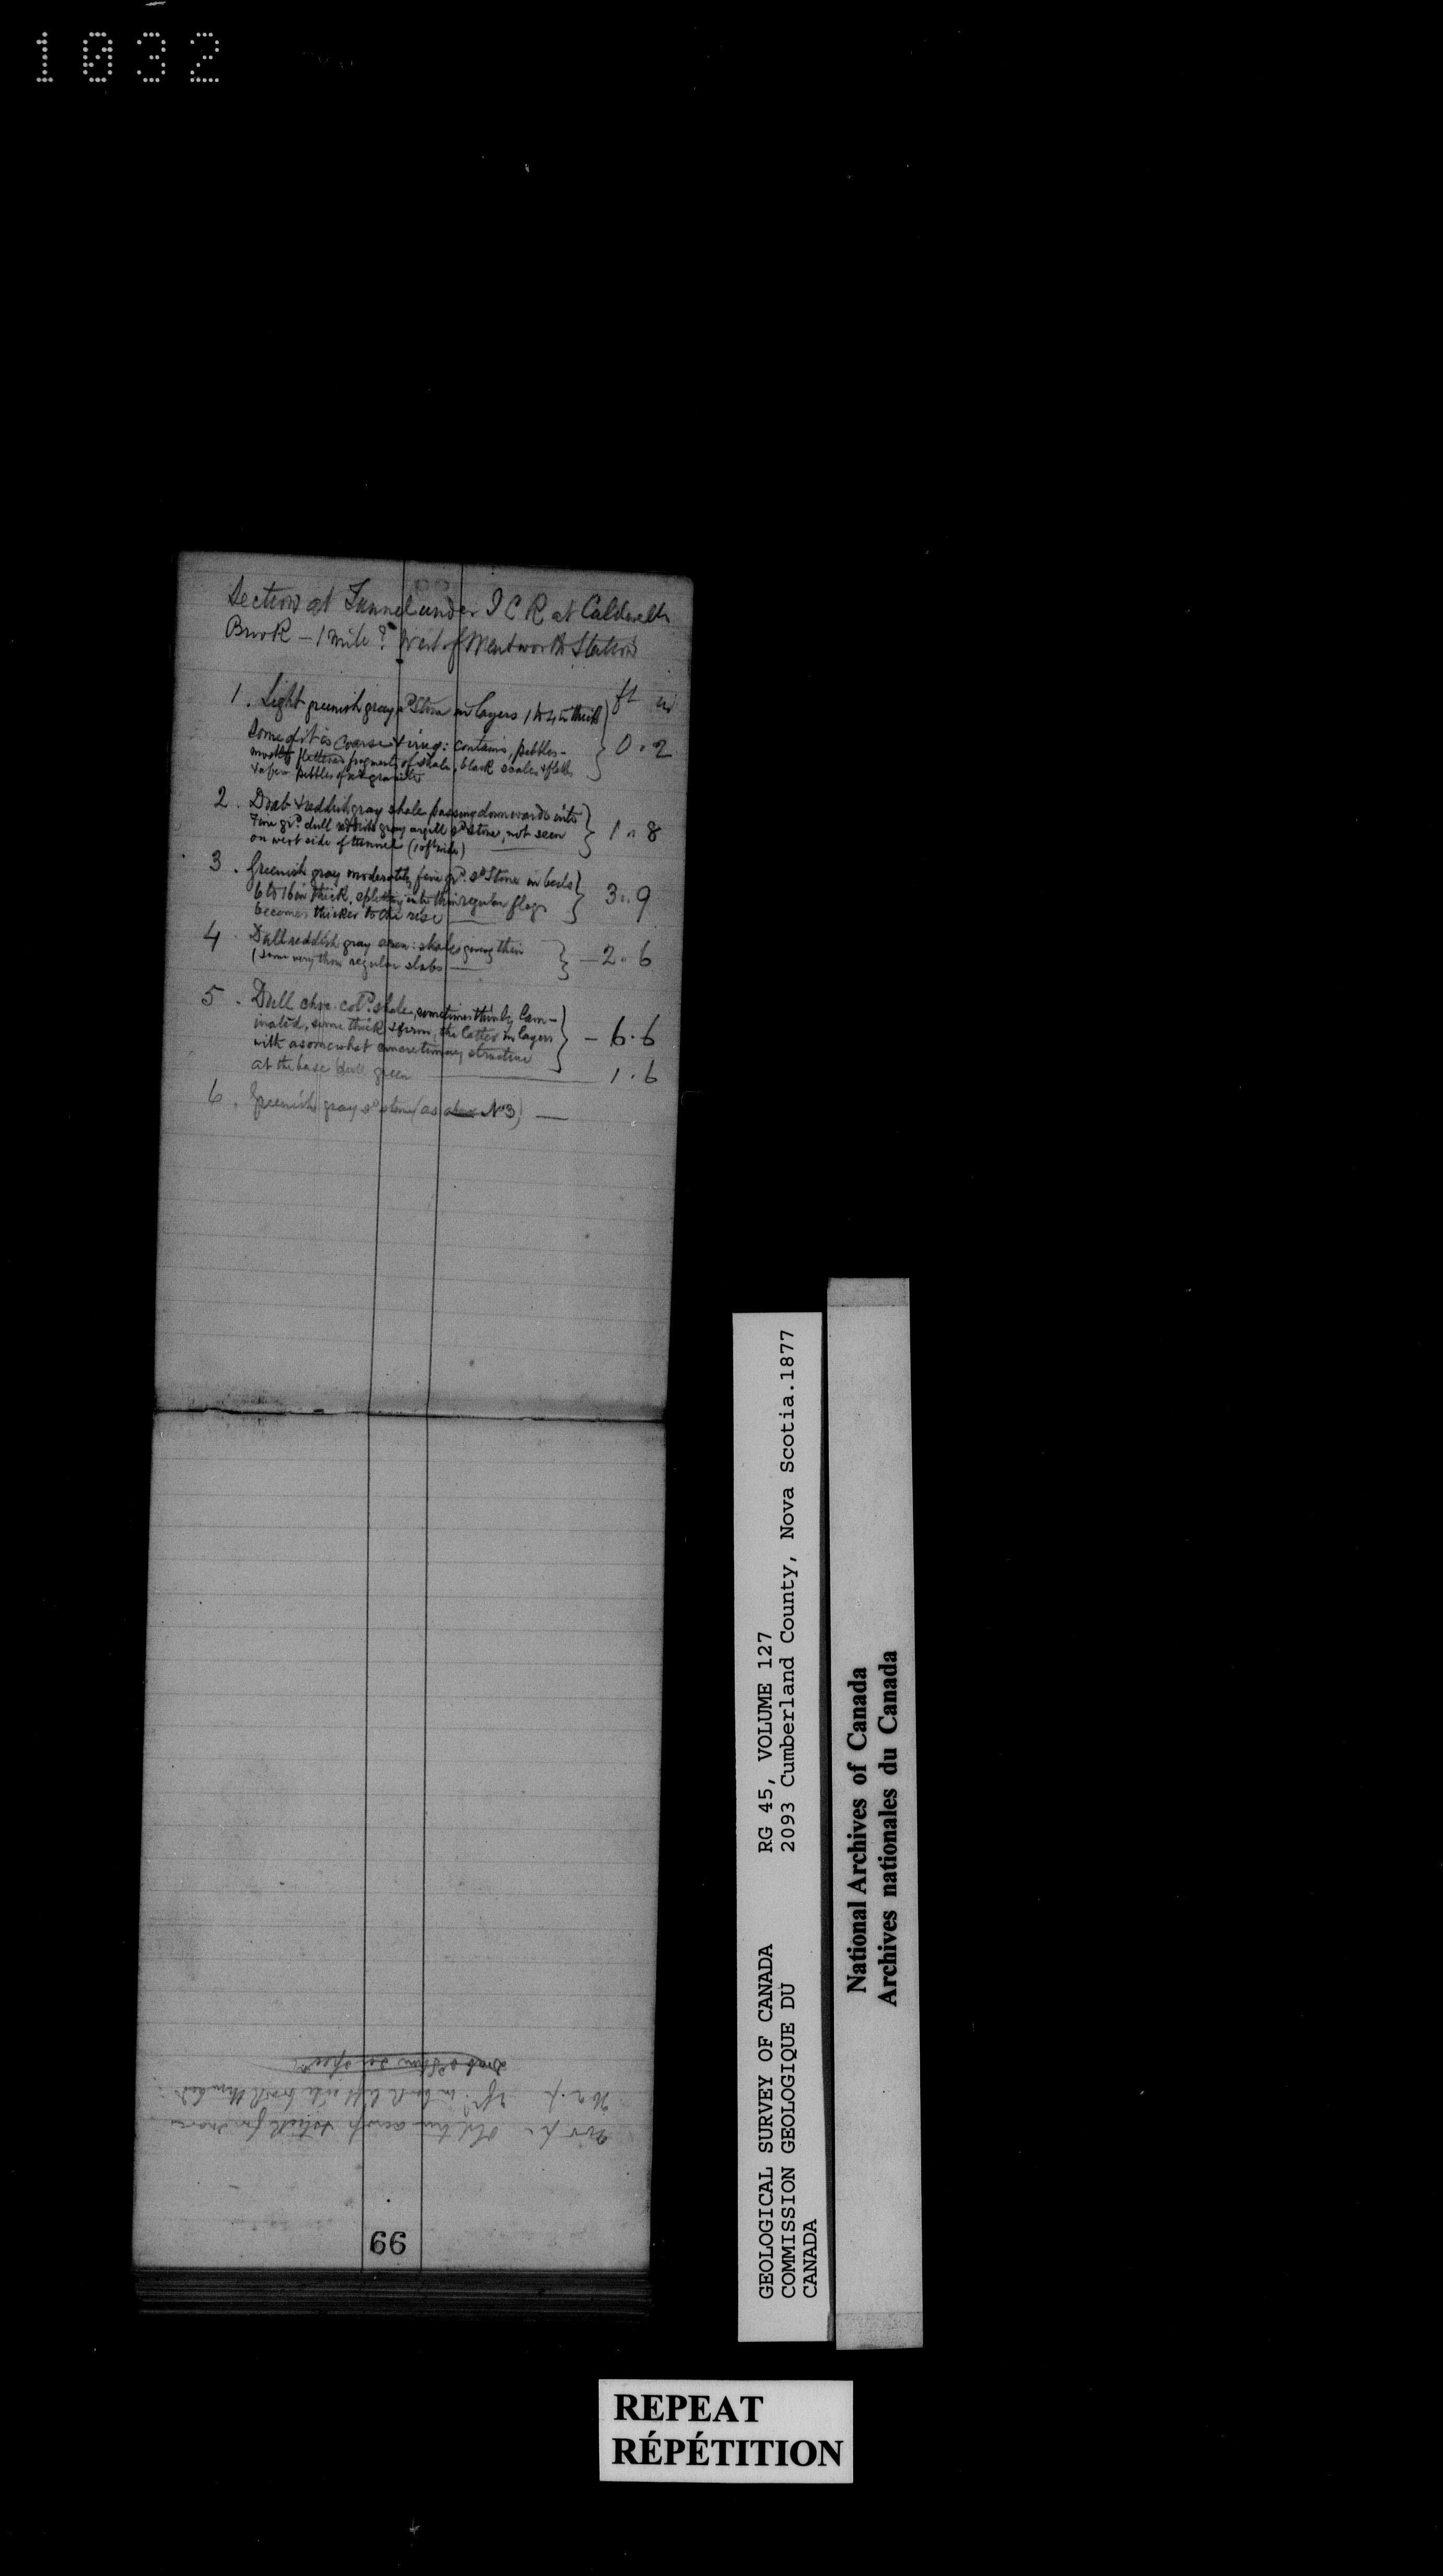 1032
Section at Tunnel under I C R at Caldwells
Brook – 1 mile ? West of Wentworth Station
ft in
1. Light greenish gray sdstone in layers 1 to 4 in thick
Some of it is coarse & irreg: contains, pebbles – 0.2
mostly flattened fragments of shale, black scales &
& a few pebbles of red granite
2. Drab & reddish gray shale passing downwards into
Fine grd. dull reddish gray argill sdstone, not seen 1.8
on west side of tunnel (10 ft wide)
3. Greenish gray moderately fine grd. sdstone in beds
6 to 16 in thick, splitting into thin regular flags 3.9
becomes thicker to the rise
4. Dull reddish gray aren: shales giving thin
(some very thin regular slabs – 2.6
5. Dull choc. cold. shale, sometimes thinly lam–
inated, some thick & firm, the latter in layers – 6.6
with a somewhat concretionary structure
at the base dull green 1.6
6. Greenish gray sdstone (as above No 3) —
66
GEOLOGICAL SURVEY OF CANADA RG 45, VOLUME 127
COMMISSION GEOLOGIQUE DU 2093 Cumberland County, Nova Scotia.1877
CANADA
National Archives of Canada
Archives nationales du Canada
REPEAT
RÉPÉTITION